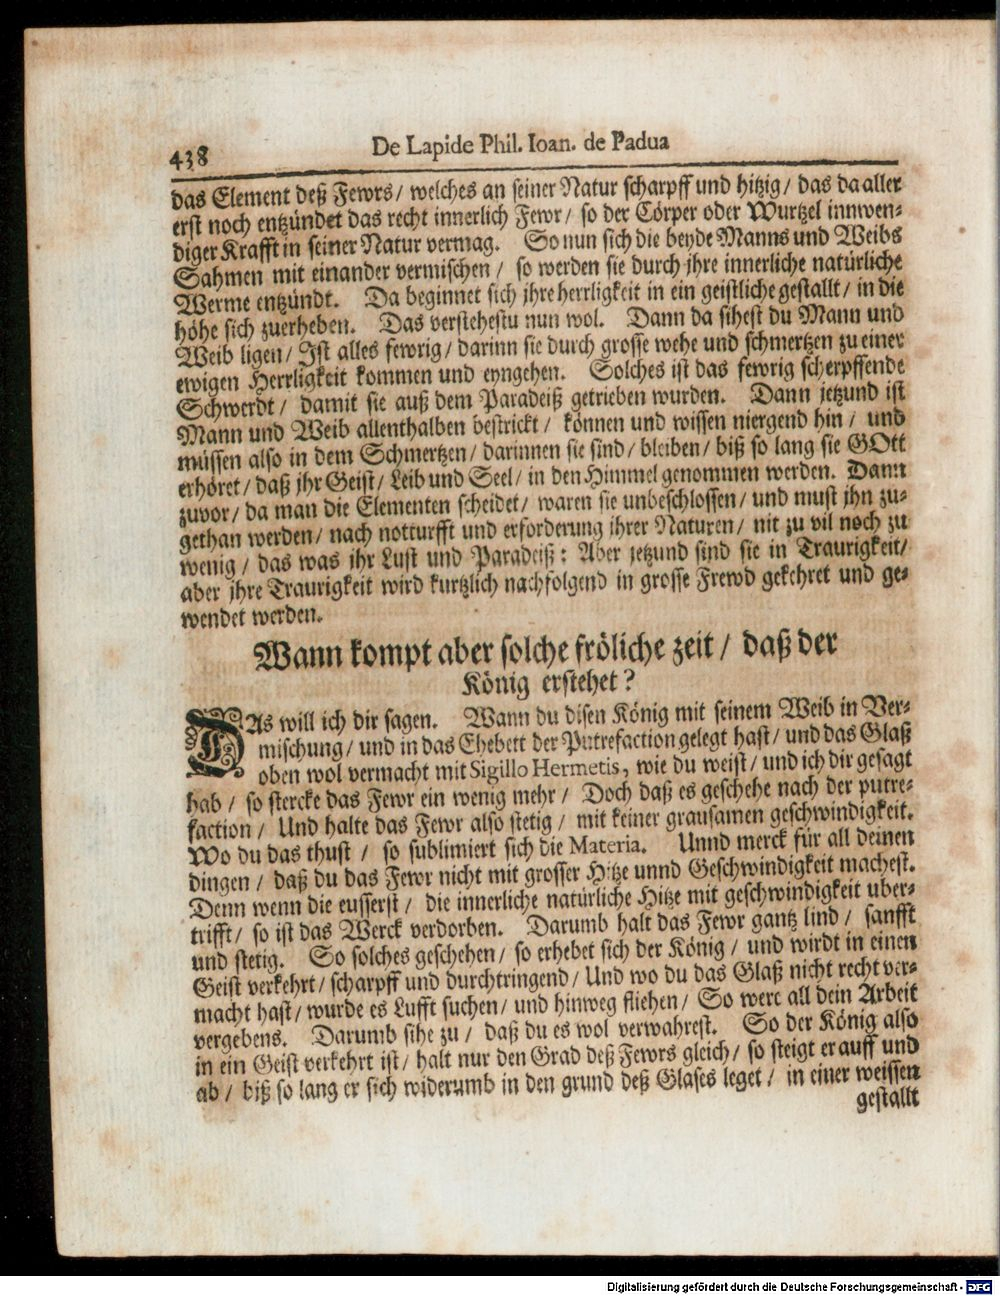 438
De Lapide Phil. Ioan. de Padua
das Element deß Fewrs / welches an seiner Natur scharpff und hitzig / das da aller
erst noch entzündet das recht innerlich Fewr / so der Cörper oder Wurtzel innwen-
diger Krafft in seiner Natur vermag. So nun sich die beyde Manns und Weibs
Sahmen mit einander vermischen / so werden sie durch jhre innerliche natürliche
Werme entzündt. Da beginnet sich jhre herrligkeit in ein geistliche gestallt / in die
höhe sich zuerheben. Das verstehestu nun wol. Dann da sihest du Mann und
Weib ligen / Ist alles fewrig / darinn sie durch grosse wehe und schmertzen zu einer
ewigen Herrligkeit kommen und eyngehen. Solches ist das fewrig scherpffende
Schwerdt / damit sie auß dem Paradeiß getrieben wurden. Dann jetzund ist
Mann und Weib allenthalben bestrickt / können und wissen niergend hin / und
müssen also in dem Schmertzen / darinnen sie sind / bleiben / biß so lang sie GOtt
erhöret / daß jhr Geist / Leib und Seel / in den Himmel genommen werden. Dann
zuvor / da man die Elementen scheidet / waren sie unbeschlossen / und must jhn zu-
gethan werden / nach notturfft und erforderung ihrer Naturen / nit zu vil noch zu
wenig / das was ihr Lust und Paradeiß : Aber jetzund sind sie in Traurigkeit /
aber jhre Traurigkeit wird kurtzlich nachfolgend in grosse Frewd gekehret und ge-
wendet werden.
Wann kompt aber solche fröliche zeit / daß der
König erstehet ?
DAs will ich dir sagen. Wann du disen König mit seinem Weib in Ver-
mischung / und in das Ehebett der Putrefaction gelegt hast / und das Glaß
oben wol vermacht mit Sigillo Hermetis, wie du weist / und ich dir gesagt
hab / so stercke das Fewr ein wenig mehr / Doch daß es geschehe nach der putre-
faction / Und halte das Fewr also stetig / mit keiner grausamen geschwindigkeit.
Wo du das thust / so sublimiert sich die Materia. Unnd merck für all deinen
dingen / daß du das Fewr nicht mit grosser Hitze unnd Geschwindigkeit machest.
Denn wenn die eusserst / die innerliche natürliche Hitze mit geschwindigkeit uber-
trifft / so ist das Werck verdorben. Darumb halt das Fewr gantz lind / sanfft
und stetig. So solches geschehen / so erhebet sich der König / und wirdt in einen
Geist verkehrt / scharpff und durchtringend / Und wo du das Glaß nicht recht ver-
macht hast / wurde es Lufft suchen / und hinweg fliehen / So were all dein Arbeit
vergebens. Darumb sihe zu / daß du es wol verwahrest. So der König also
in ein Geist verkehrt ist / halt nur den Grad deß Fewrs gleich / so steigt er auff und
ab / biß so lang er sich widerumb in den grund deß Glases leget / in einer weissen
gestallt
Digitalisierung gefördert durch die Deutsche Forschungsgemeinschaft - DFG